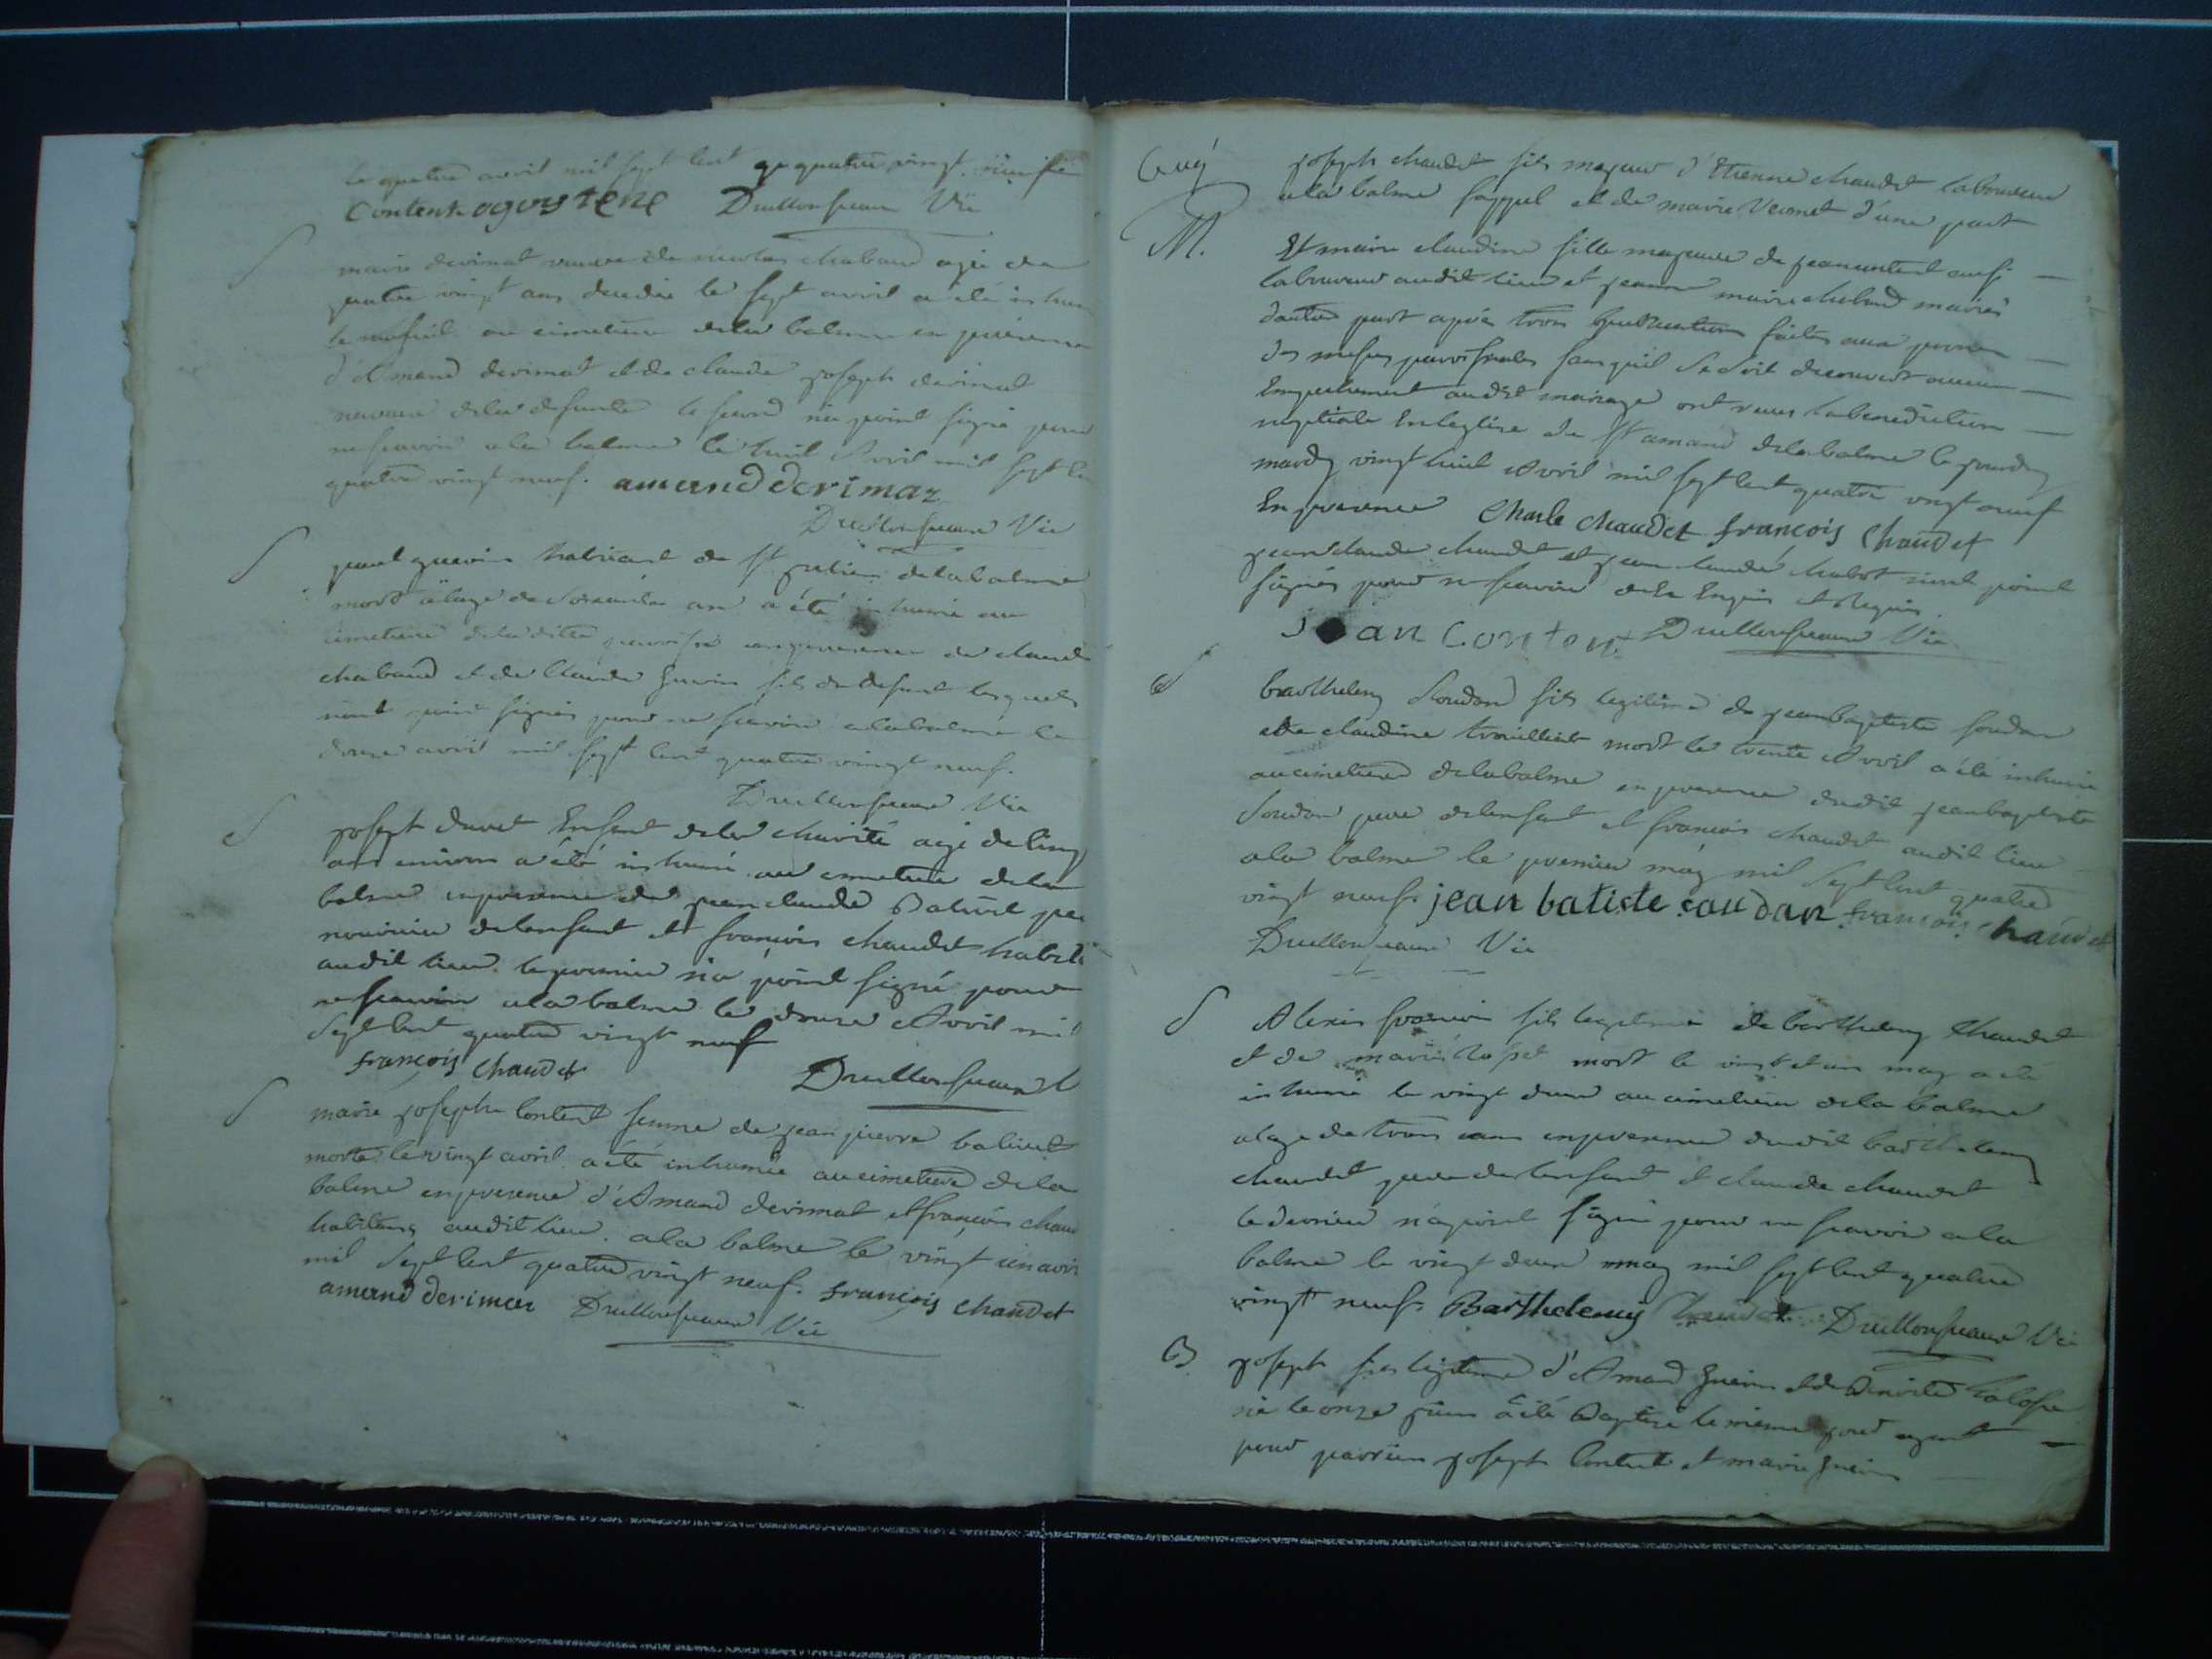 le quatre avril mil sept cent quatre vingt
Content ogustene Druillonseaux Vic
S
marie derimat veuve de nicolas chabaud agée de
quatre vingt ans le sept avril a été inhum
au cimetiere dela balme en presence
d'Amand derimat et de claude joseph derimat
neveux dela defunte le second n'a point signé pour
ne scavoir a la balme le huit avril mil sept
quatre vingt neuf. amand derimaz
Druillonseaux Vic
S
habitant de St julien delabalme
mort a l'age de soixante an a été inhumé au
cimetiere dela ditte paroisse en presence de claude
chabaud et de Claude guerin fils du defunt lesquels
n'ont point signés pour ne scavoir a la balme le
douze avril mil sept cent quatre vingt neuf.
Druillonseaux Vic
S
joseph duret Enfant dela charité agé de cinq
ans environ a été inhumé au cimetiere dela
balme en presence de jean claude
nouricier delenfant et françois chaudet
audit lieu. le premier n'a point signé pour
ne scavoir a la balme le douze avril mil
sept cent quatre vingt neuf
françois chaudet Druillonseaux
S
marie josephe Content femme de jean pierre balivet
morte le vingt avril a été inhumée au cimetiere dela
balme en presence d'Amand derimat et françois chau
habitans audit lieu. a la balme le vingt un avri
mil sept cent quatre vingt neuf. françois chaudet
amand derimaz Druillonseaux Vic
joseph chaudet fils majeur d'Etienne chaudet laboureur
a la balme et de marie Vernet d'une part
M.
Et marie claudine fille majeure de jean content aussi
laboureur audit lieu et jeanne marie chabaud mariés
d'autre part après trois publications faites aux prones
des messes paroissiales sans qu'il se soit decouvert aucun
Empechement audit mariage ont recus la benediction
nuptiale En leglise de St amand dela balme le
mardy vingt huit Avril mil sept cent quatre vingt neuf
En presence Charle chaudet françois Chaudet
jean claude chaudet et jean claude n'ont point
signés pour ne scavoir de ce Enquis et Requis
jean Content Druillonseaux Vic
S
barthelemy Soudan fils legitime de jean baptiste soudan
et de claudine mort le trente Avril a été inhumé
au cimetiere delabalme en presence dudit jean baptiste
Soudan pere delenfant et françois chaudet audit lieu
a la balme le premier may mil sept cent quatre
vingt neuf. jean batiste saudan françois chaudet
Druillonseaux Vic
S
Alexis françois fils legitime de barthelemy Chaudet
et de marie mort le vingt et un may a été
inhumé le vingt deux au cimetiere dela balme
a lage de trois ans en presence dudit barthelemy
chaudet pere de lenfant et claude chaudet
le dernier n'a point signé pour ne scavoir a la
balme le vingt deux may mil sept cent quatre
vingt neuf. Barthelemy Chaudet Druillonseaux Vic
B
joseph fils legitime d'Amand guerin et de
né le onze juin a été Baptisé le meme jour ayant
pour parrein joseph Content et marie guerin